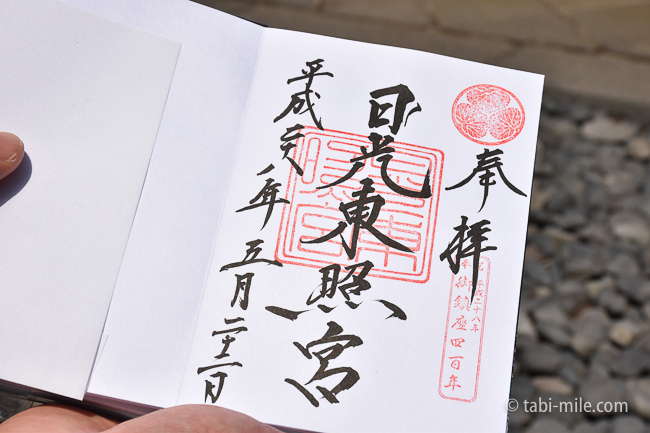 奉拝
平成二十八年
御鎮座四百年
日光東照宮
平成二八年五月二十一日
© tabi-mile.com